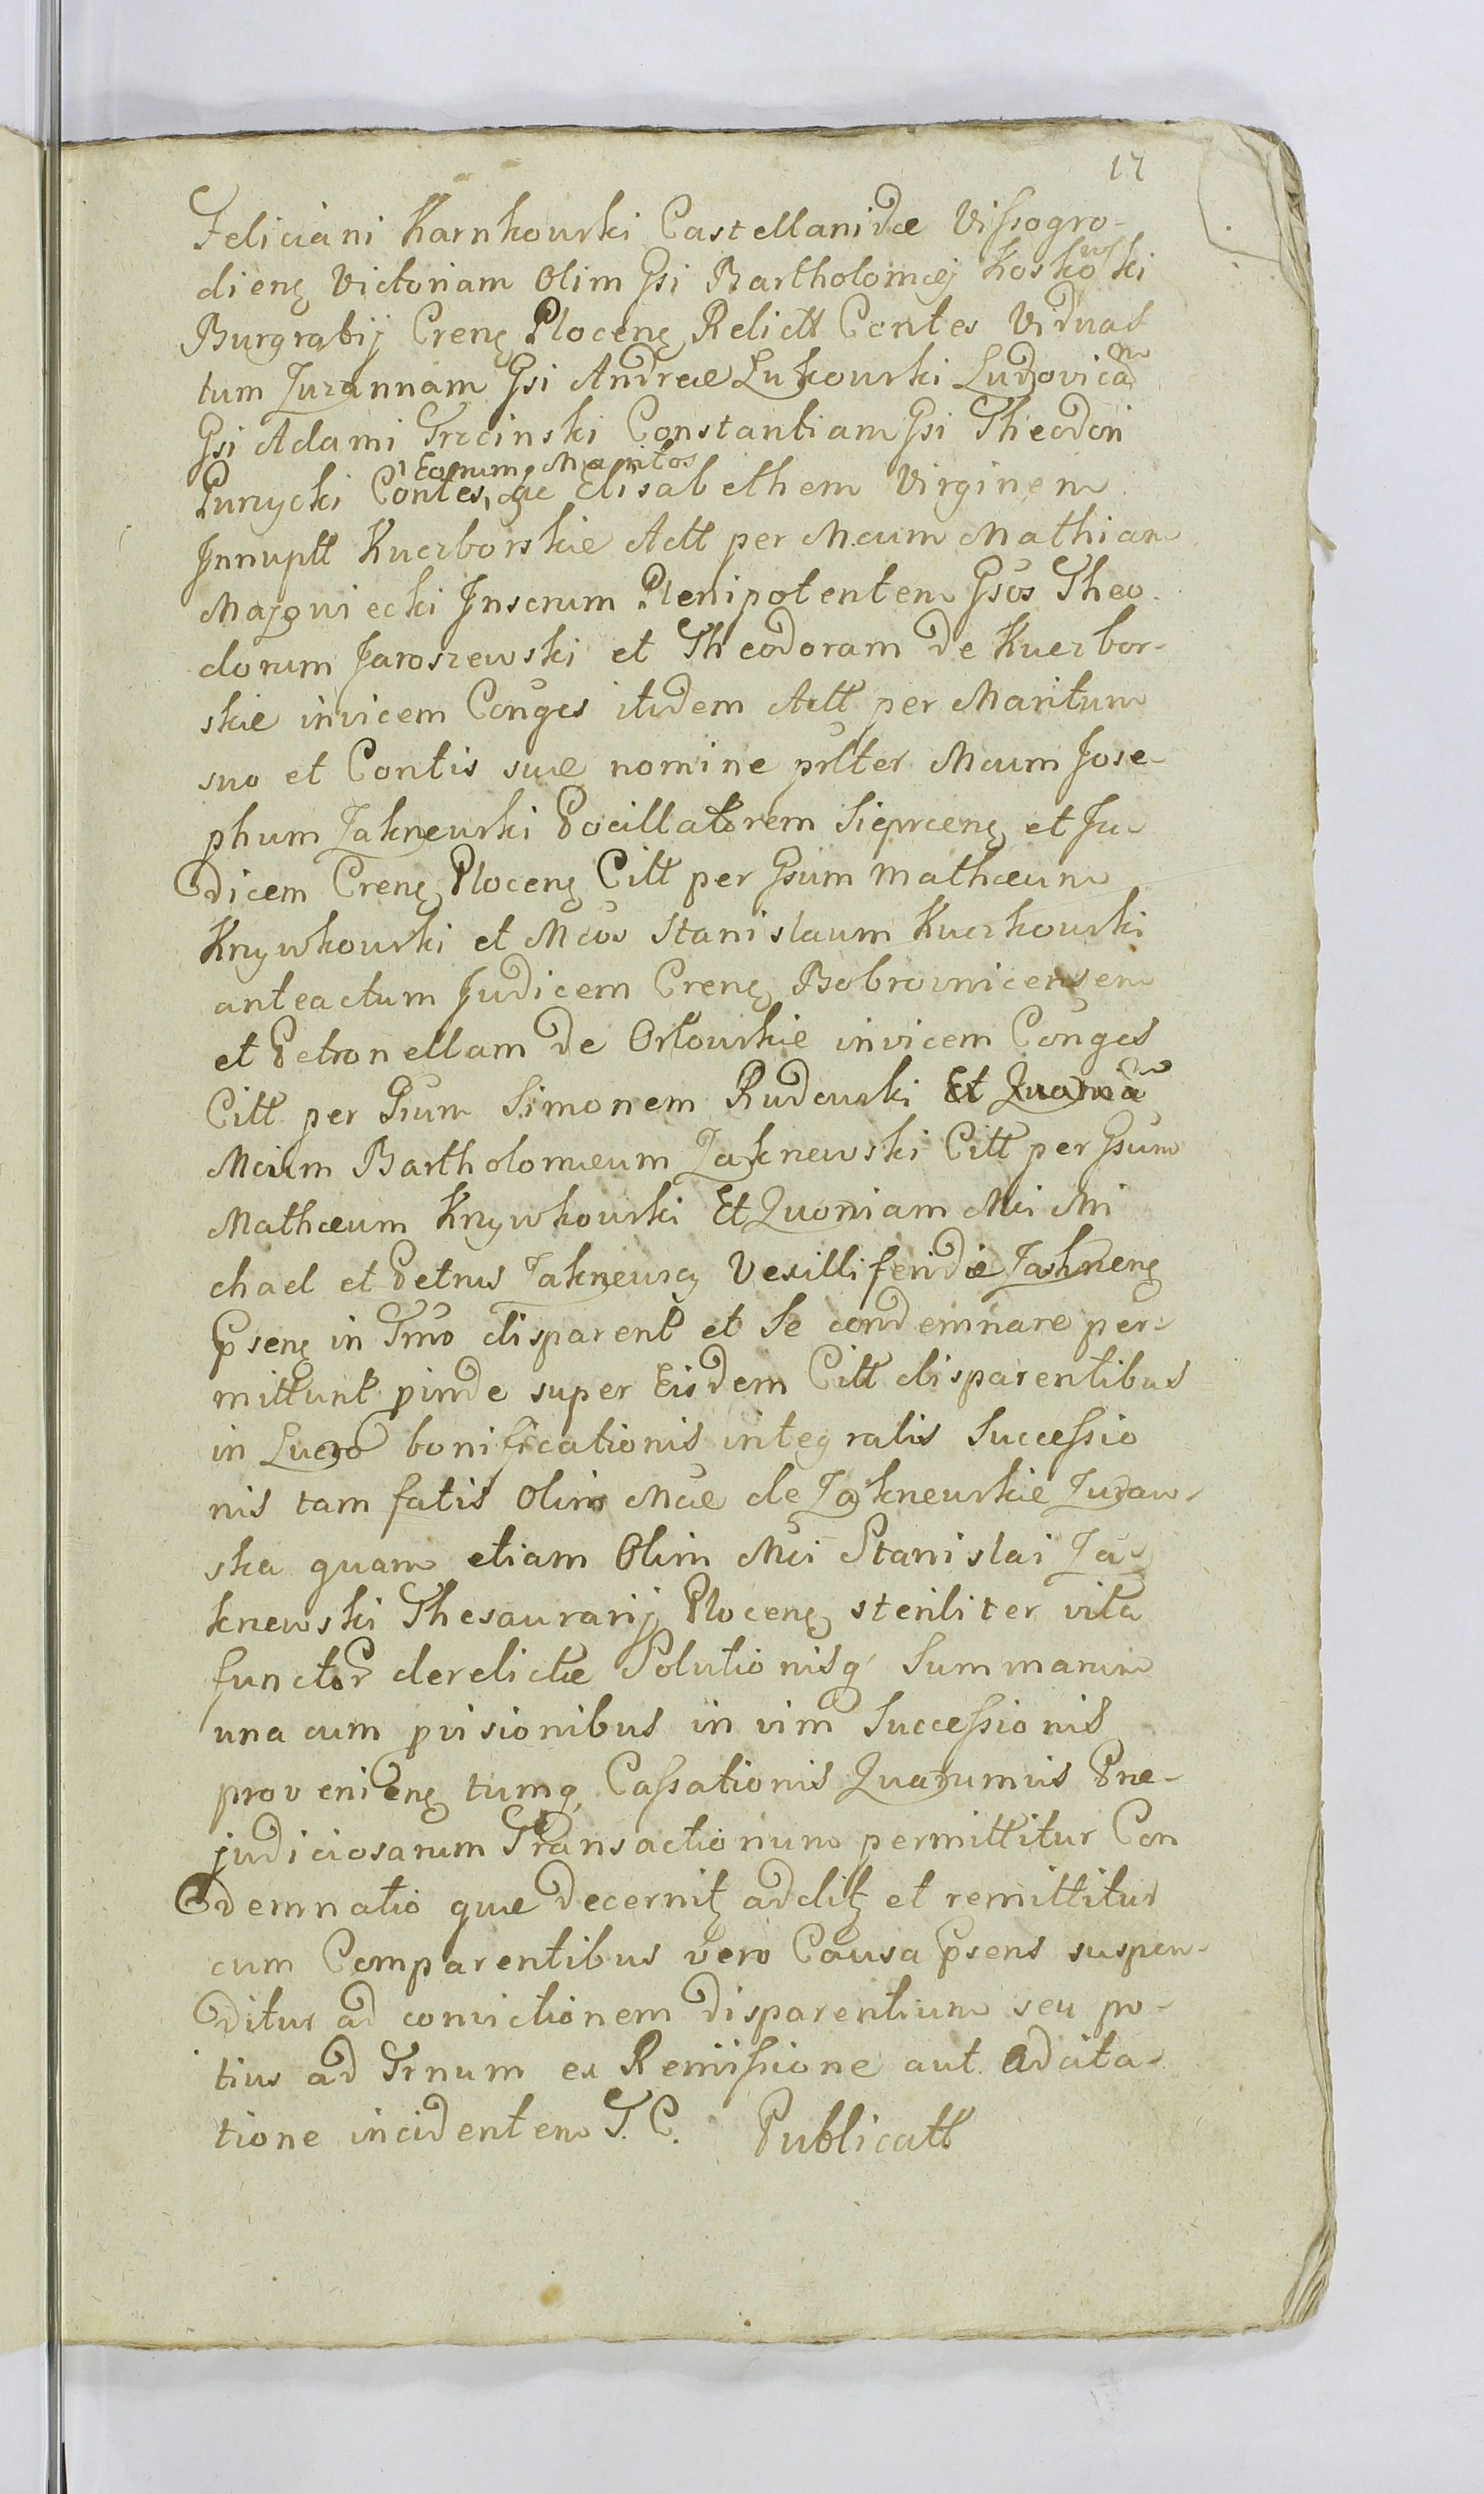 17
Feliciani Karnkowski Castellanidæ Vissogro-
dieng Victoriam Olim Gsi Bartholomæj Koskowski
Burgrabij Creng Ploceng Relictt Contes Viduas
tum Zuzannam Gsi Andreæ Lukowski Ludovicam
Gsi Adami Trzcinski Constantiam Gsi Theodori
Eorum Maritos
Purzycki Contes, ac Elisabethem Virginem
Innuptt Kuczborskie Actt per Mcum Mathiam
Mazowiecki Inscrum Plenipotentem Gsos Theo-
dorum Jaroszewski et Theodoram de Kuczbor-
skie invicem Conges itidem Actt per Maritum
suo et Contis suæ nomine prltter Mcum Jose-
phum Zakrzewski Pocillatorem Sieprceng et Ju-
dicem Creng Ploceng Citt per Gsum Mathæum
Krzywkowski et Mcos Stanislaum Kuczkowski
anteactum Judicem Creng Bobrownicensem
et Petronellam de Orłowskie invicem Conges
Citt per Gsum Simonem Rudowski Et
Mcium Bartholomæum Zakrzewski Citt per Gsum
Mathæum Krzywkowski Et Quoniam Mci Mi
chael et Petrus Zakrzewscy Vexilliferidæ Zakrzeng
Pseng in Trno disparent et Se condemnare per-
mittunt pinde super Eisdem Citt disparentibus
in Lucro bonificationis integralis Successio
nis tam fatis Olim Mcæ de Zakrzewskie Zuraw-
ska quam etiam Olim Mci Stanislai Za-
krzewski Thesaurarij Ploceng steriliter vita
functor derelictæ Solutionisq Summarum
una cum pvisionibus in vim Successionis
provenieng tumq Cassationis Quarumvis Præ-
judiciosarum Transactionum permittitur Con
demnatio quæ decernitz additz et remittitur
cum Comparentibus vero Causa Psens suspen-
ditur ad convictionem disparentium seu po-
tius ad Trnum ex Remissione aut Adcita-
tione incidentem T. C. Publicatt